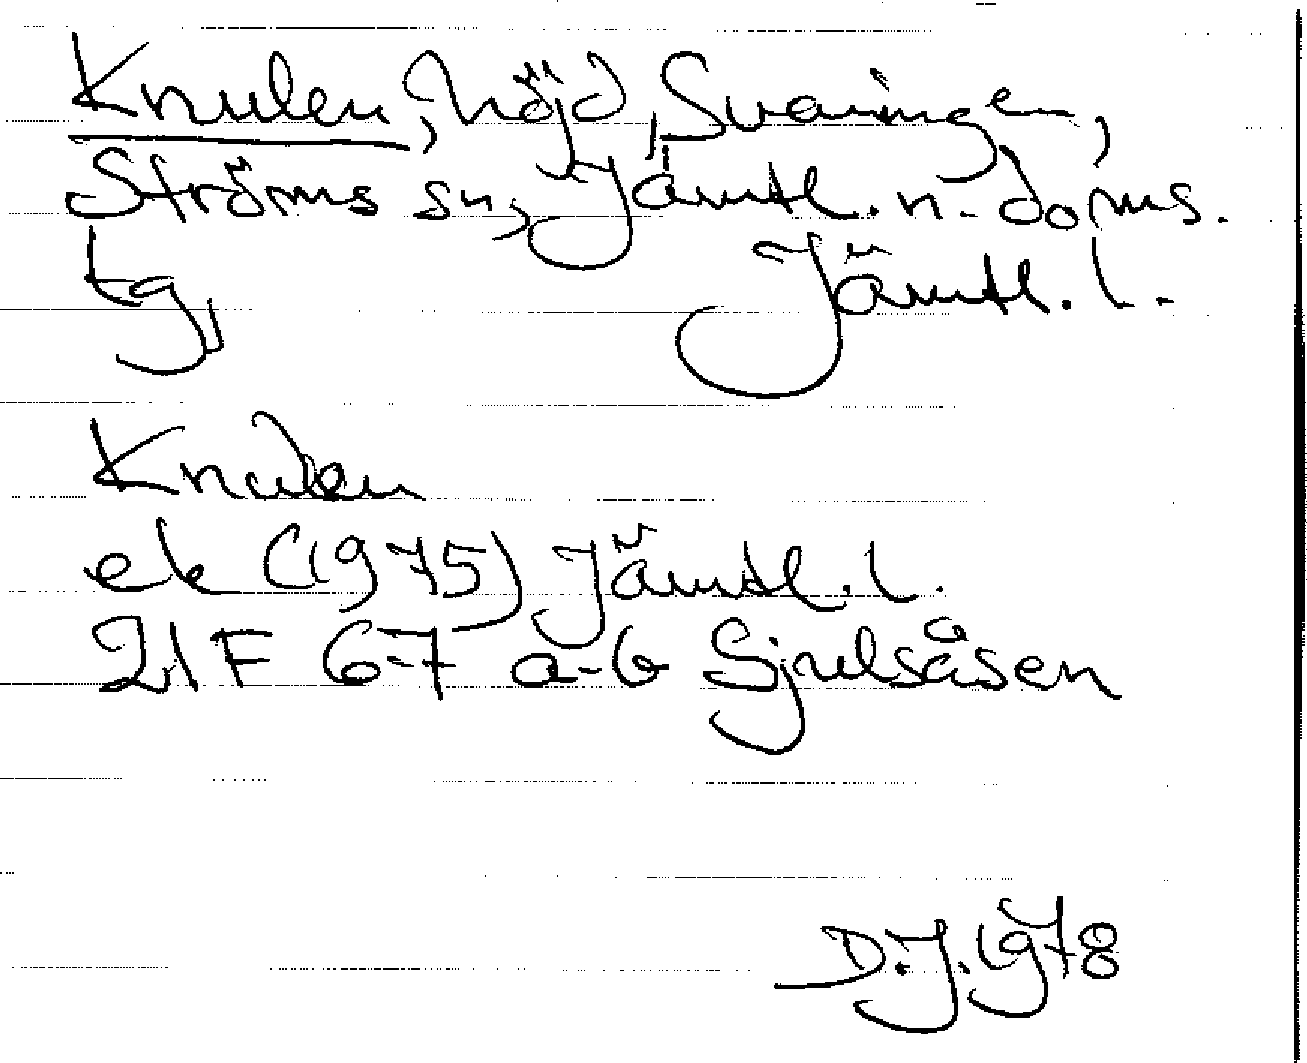 Knulen, höjd, Svaningen,
Ströms sn, Jämtl. n. doms.
tg, Jämtl. l.
Knulen
ek (1975) Jämtl. l.
21 F 6-7 a-b Sjulsåsen
D.J. 1978